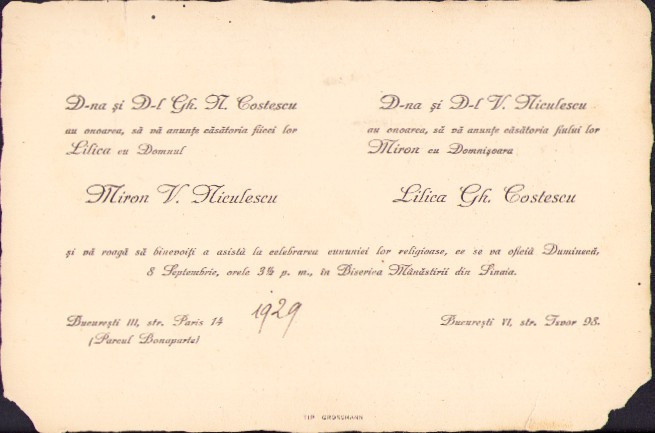 D-na și D-l Gh. N. Costescu
au onoarea, să vă anunțe căsătoria fiicei lor
Lilica cu Domnul
Miron V. Niculescu
D-na și D-l V. Niculescu
au onoarea, să vă anunțe căsătoria fiului lor
Miron cu Domnișoara
Lilica Gh. Costescu
și vă roagă să binevoiți a asistà la celebrarea cununiei lor religioase, ce se va oficià Duminecă,
8 Septembrie, orele 3½ p. m., în Biserica Mânăstirii din Sinaia.
București III, str. Paris 14
(Parcul Bonaparte)
1929
București VI, str. Isvor 98.
TIP. GROSSMANN